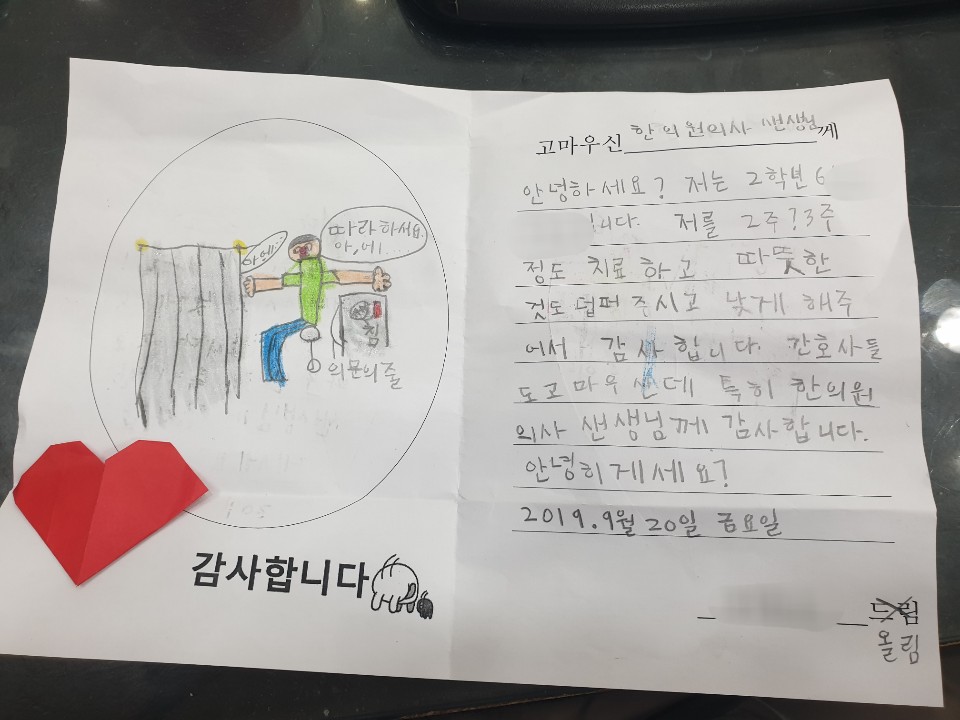 아에..
따라하서요.
아,에...
침
의문의줄
감사합니다
고마우신 한의원의사 쌘생님께
안녕하세요? 저는 2학년 6
니다. 저를 2주?3주
정도 치료하고 따뜻한
것도 덥퍼 주시고 낮게 해주
어서 감사합니다. 간호사들
도고마우신데 특히 한의원
의사 쌘생님께 감사합니다.
안녕히게세요?
2019.9월 20일 금요일
드림
올림